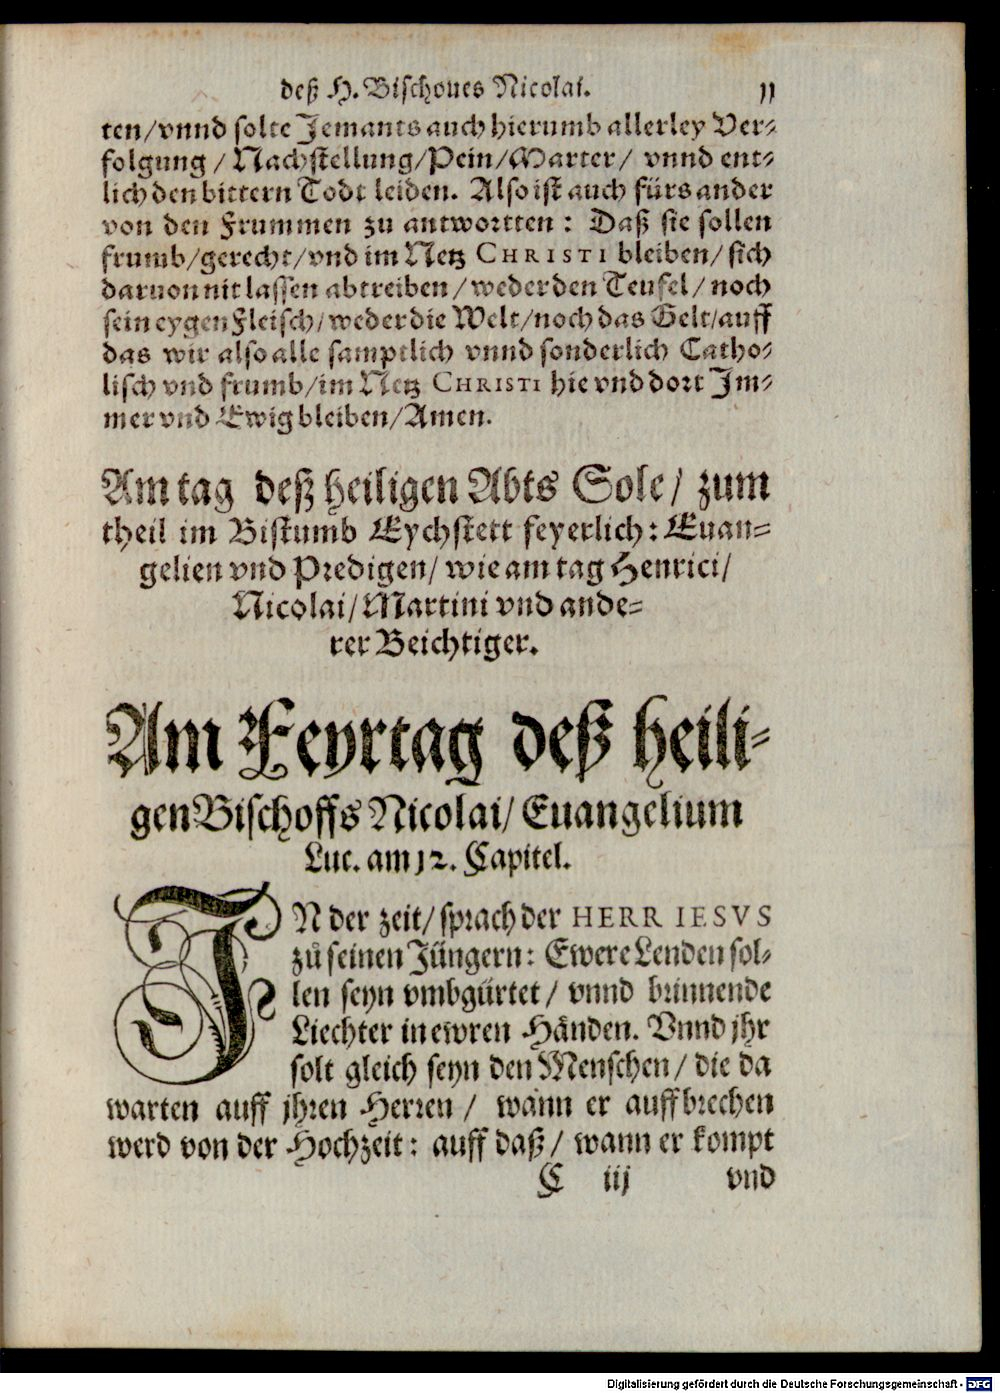 deß H. Bischoues Nicolai. 11
ten/vnnd solte Jemants auch hierumb allerley Ver-
folgung / Nachstellung/Pein/Marter/ vnnd ent-
lich den bittern Todt leiden. Also ist auch fürs ander
von den Frummen zu antwortten: Daß sie sollen
frumb/gerecht/vnd im Netz CHRISTI bleiben/ sich
daruon nit lassen abtreiben/weder den Teufel/ noch
sein eygen Fleisch/weder die Welt/noch das Gelt/auff
das wir also alle samptlich vnnd sonderlich Catho-
lisch vnd frumb/im Netz CHRISTI hie vnd dort Im-
mer vnd Ewig bleiben/Amen.
Am tag deß heiligen Abts Sole/ zum
theil im Bistumb Eychstett feyerlich: Euan-
gelien vnd Predigen/ wie am tag Henrici/
Nicolai/Martini vnd ande-
rer Beichtiger.
Am Feyrtag deß heili-
gen Bischoffs Nicolai/ Euangelium
Luc. am 12. Capitel.
IN der zeit/ sprach der HERR IESVS
zů seinen Jüngern: Ewere Lenden sol-
len seyn vmbgürtet/ vnnd brinnende
Liechter in ewren Händen. Vnnd jhr
solt gleich seyn den Menschen/ die da
warten auff jhren Herren / wann er auffbrechen
werd von der Hochzeit: auff daß/ wann er kompt
C iij vnd
Digitalisierung gefördert durch die Deutsche Forschungsgemeinschaft - DFG